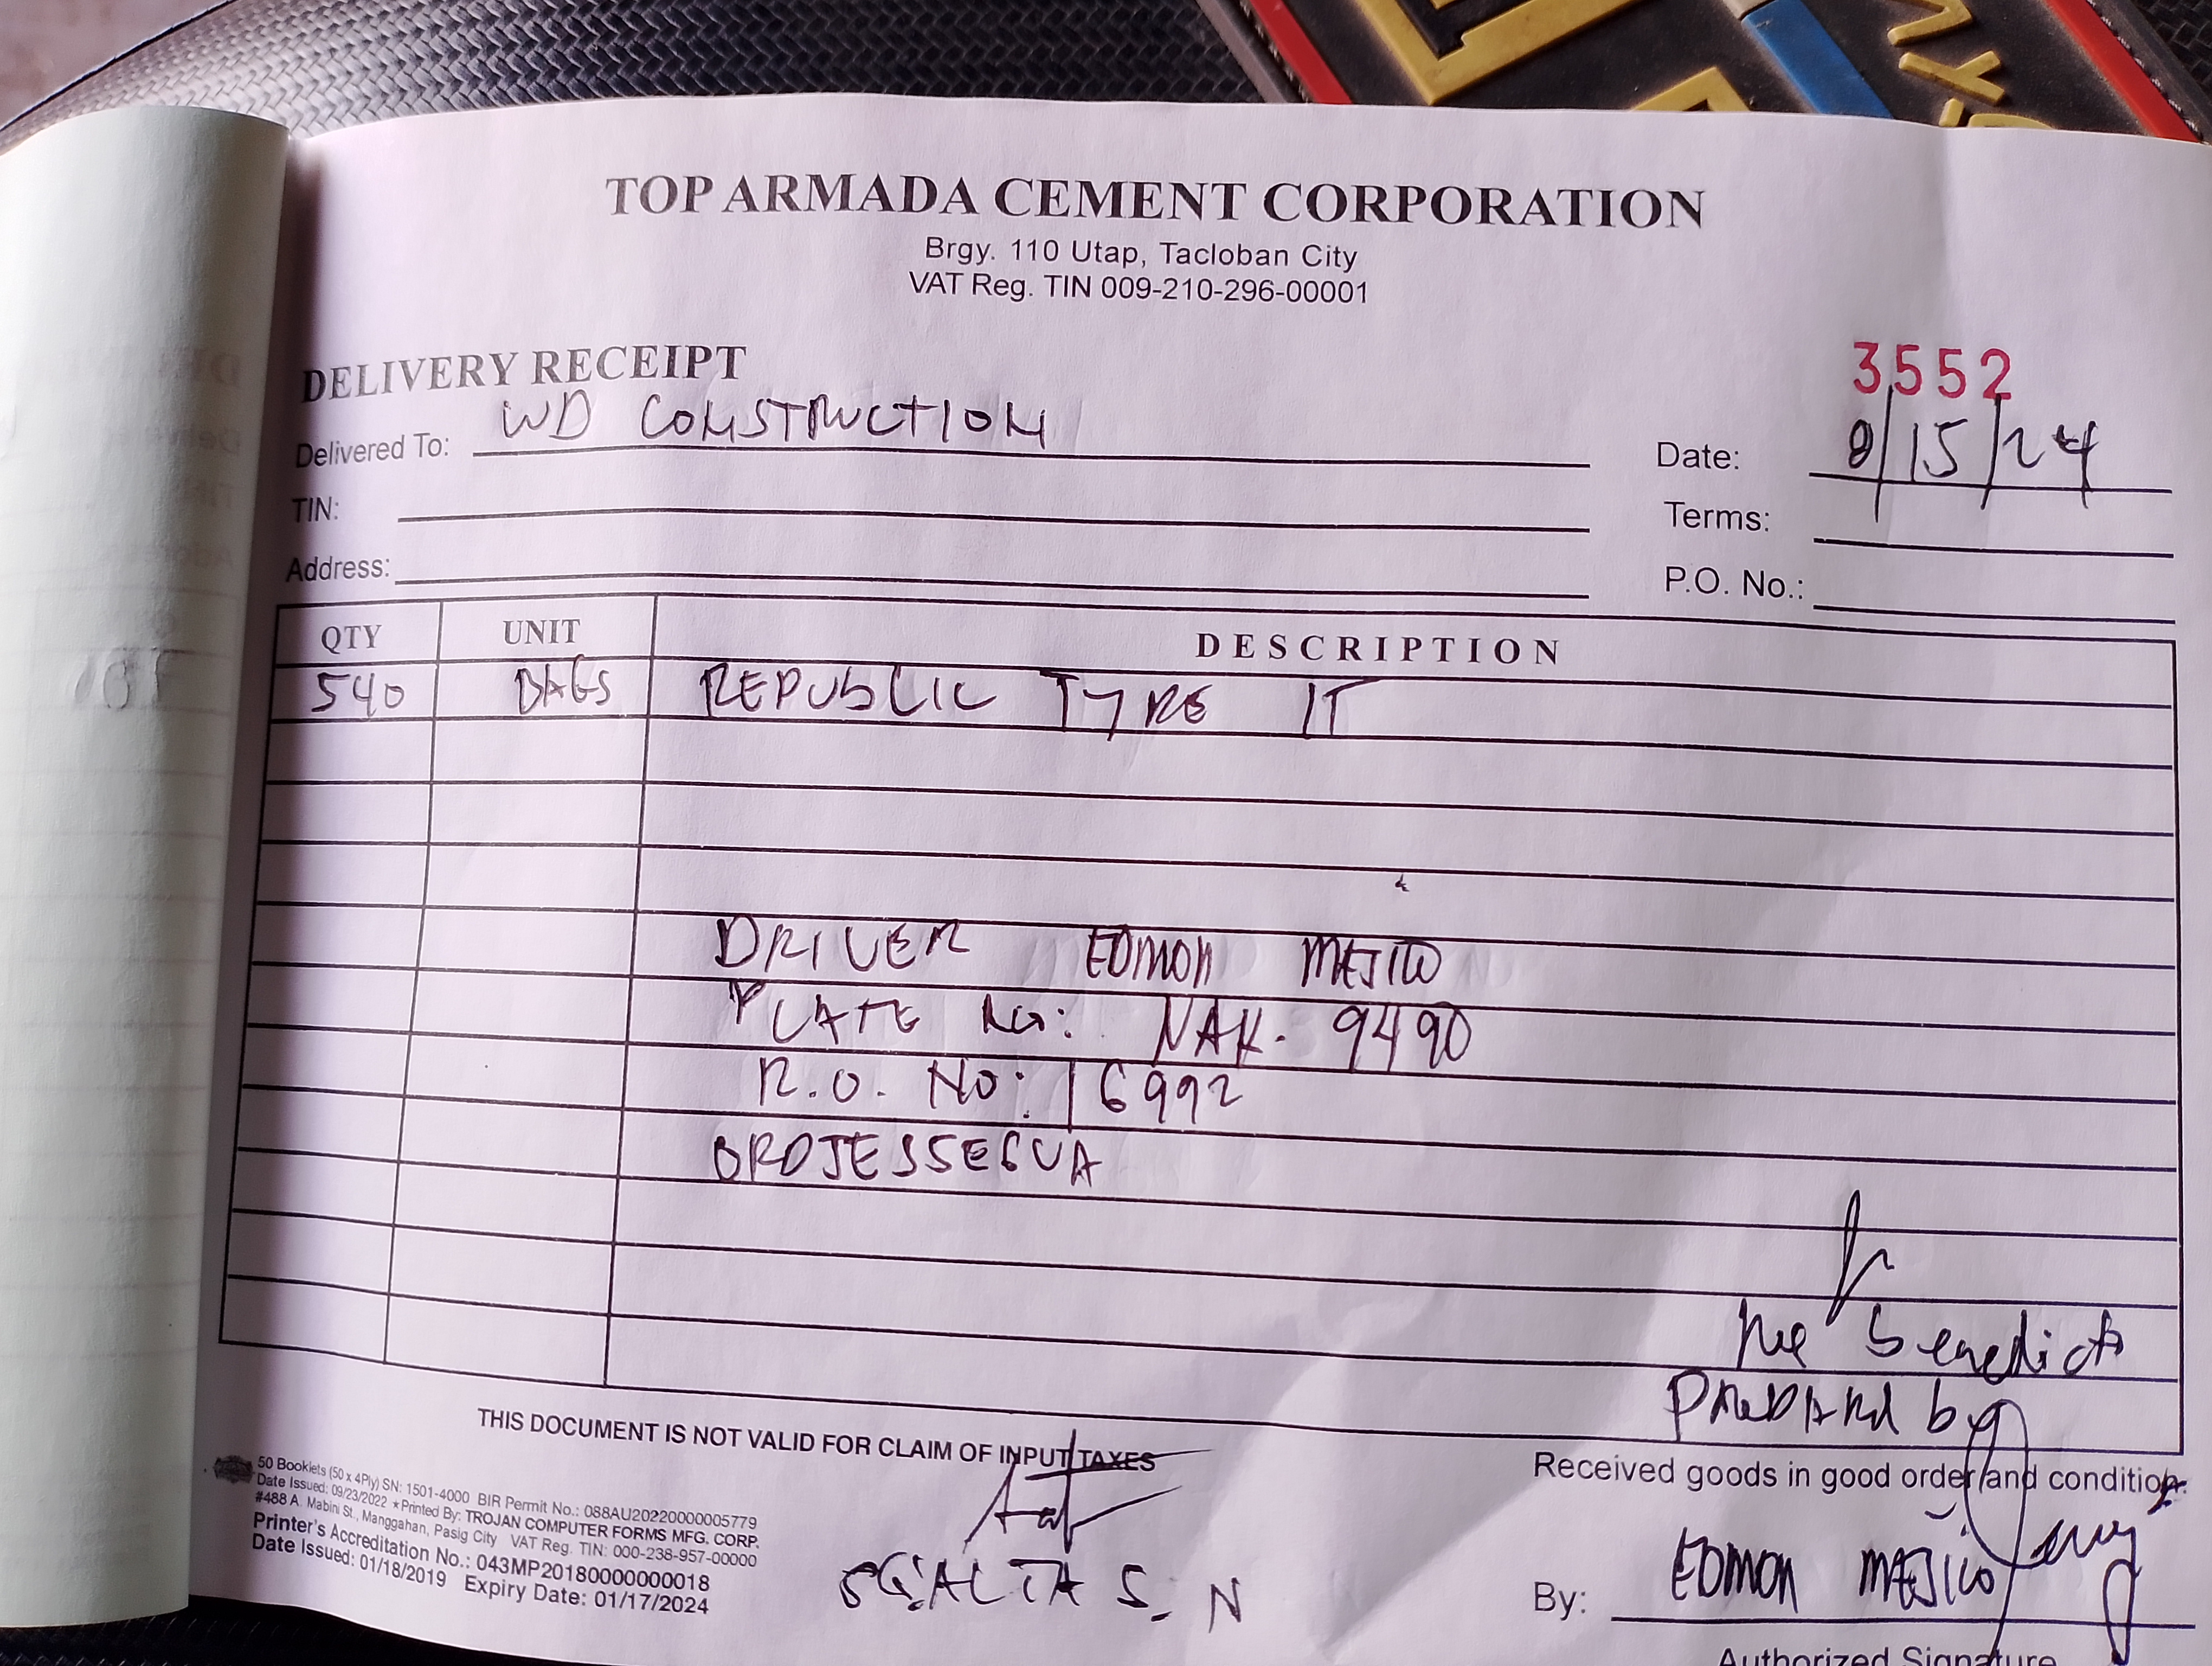 TOP ARMADA CEMENT CORPORATION
Brgy. 110 Utap, Tacloban City
VAT Reg. TIN 009-210-296-00001
DELIVERY RECEIPT
3552
Delivered To: WD CONSTRUCTION
Date: 8/15/24
TIN:
Terms:
Address:
P.O. No.:
QTY UNIT DESCRIPTION
540 BAGS REPUBLIC TYPE IT
DRIVER EDMON MEJICO
PLATE No: NAK. 9490
R.O. No: 16992
Benedicto
Prepared by
THIS DOCUMENT IS NOT VALID FOR CLAIM OF INPUT TAXES
Received goods in good order and condition.
50 Booklets (50 x 4Ply) SN: 1501-4000 BIR Permit No.: 088AU20220000005779
Date Issued: 09/23/2022 * Printed By: TROJAN COMPUTER FORMS MFG. CORP.
#488 A. Mabini St., Manggahan, Pasig City VAT Reg. TIN: 000-238-957-00000
Printer's Accreditation No.: 043MP20180000000018
Date Issued: 01/18/2019 Expiry Date: 01/17/2024
By: EDMON MEJICO
Authorized Signature